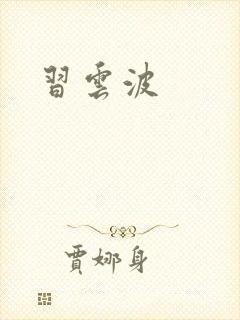 習雲波
賈娜身